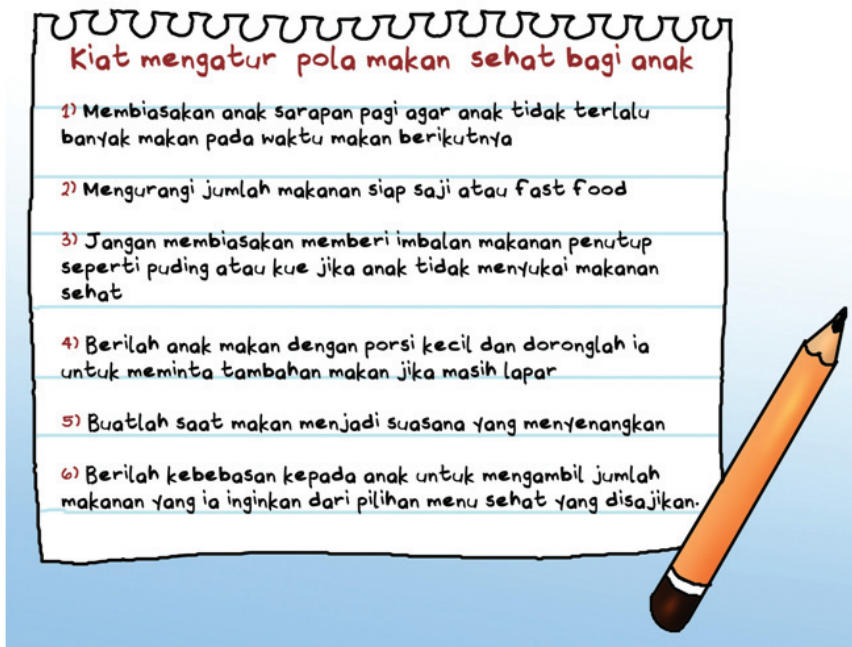 Kiat mengatur pola makan sehat bagi anak
1) Membiasakan anak sarapan pagi agar anak tidak terlalu
banyak makan pada waktu makan berikutnya
2) Mengurangi jumlah makanan siap saji atau fast food
3) Jangan membiasakan memberi imbalan makanan penutup
seperti puding atau kue jika anak tidak menyukai makanan
sehat
4) Berilah anak makan dengan porsi kecil dan doronglah ia
untuk meminta tambahan makan jika masih lapar
5) Buatlah saat makan menjadi suasana yang menyenangkan
6) Berilah kebebasan kepada anak untuk mengambil jumlah
makanan yang ia inginkan dari pilihan menu sehat yang disajikan.